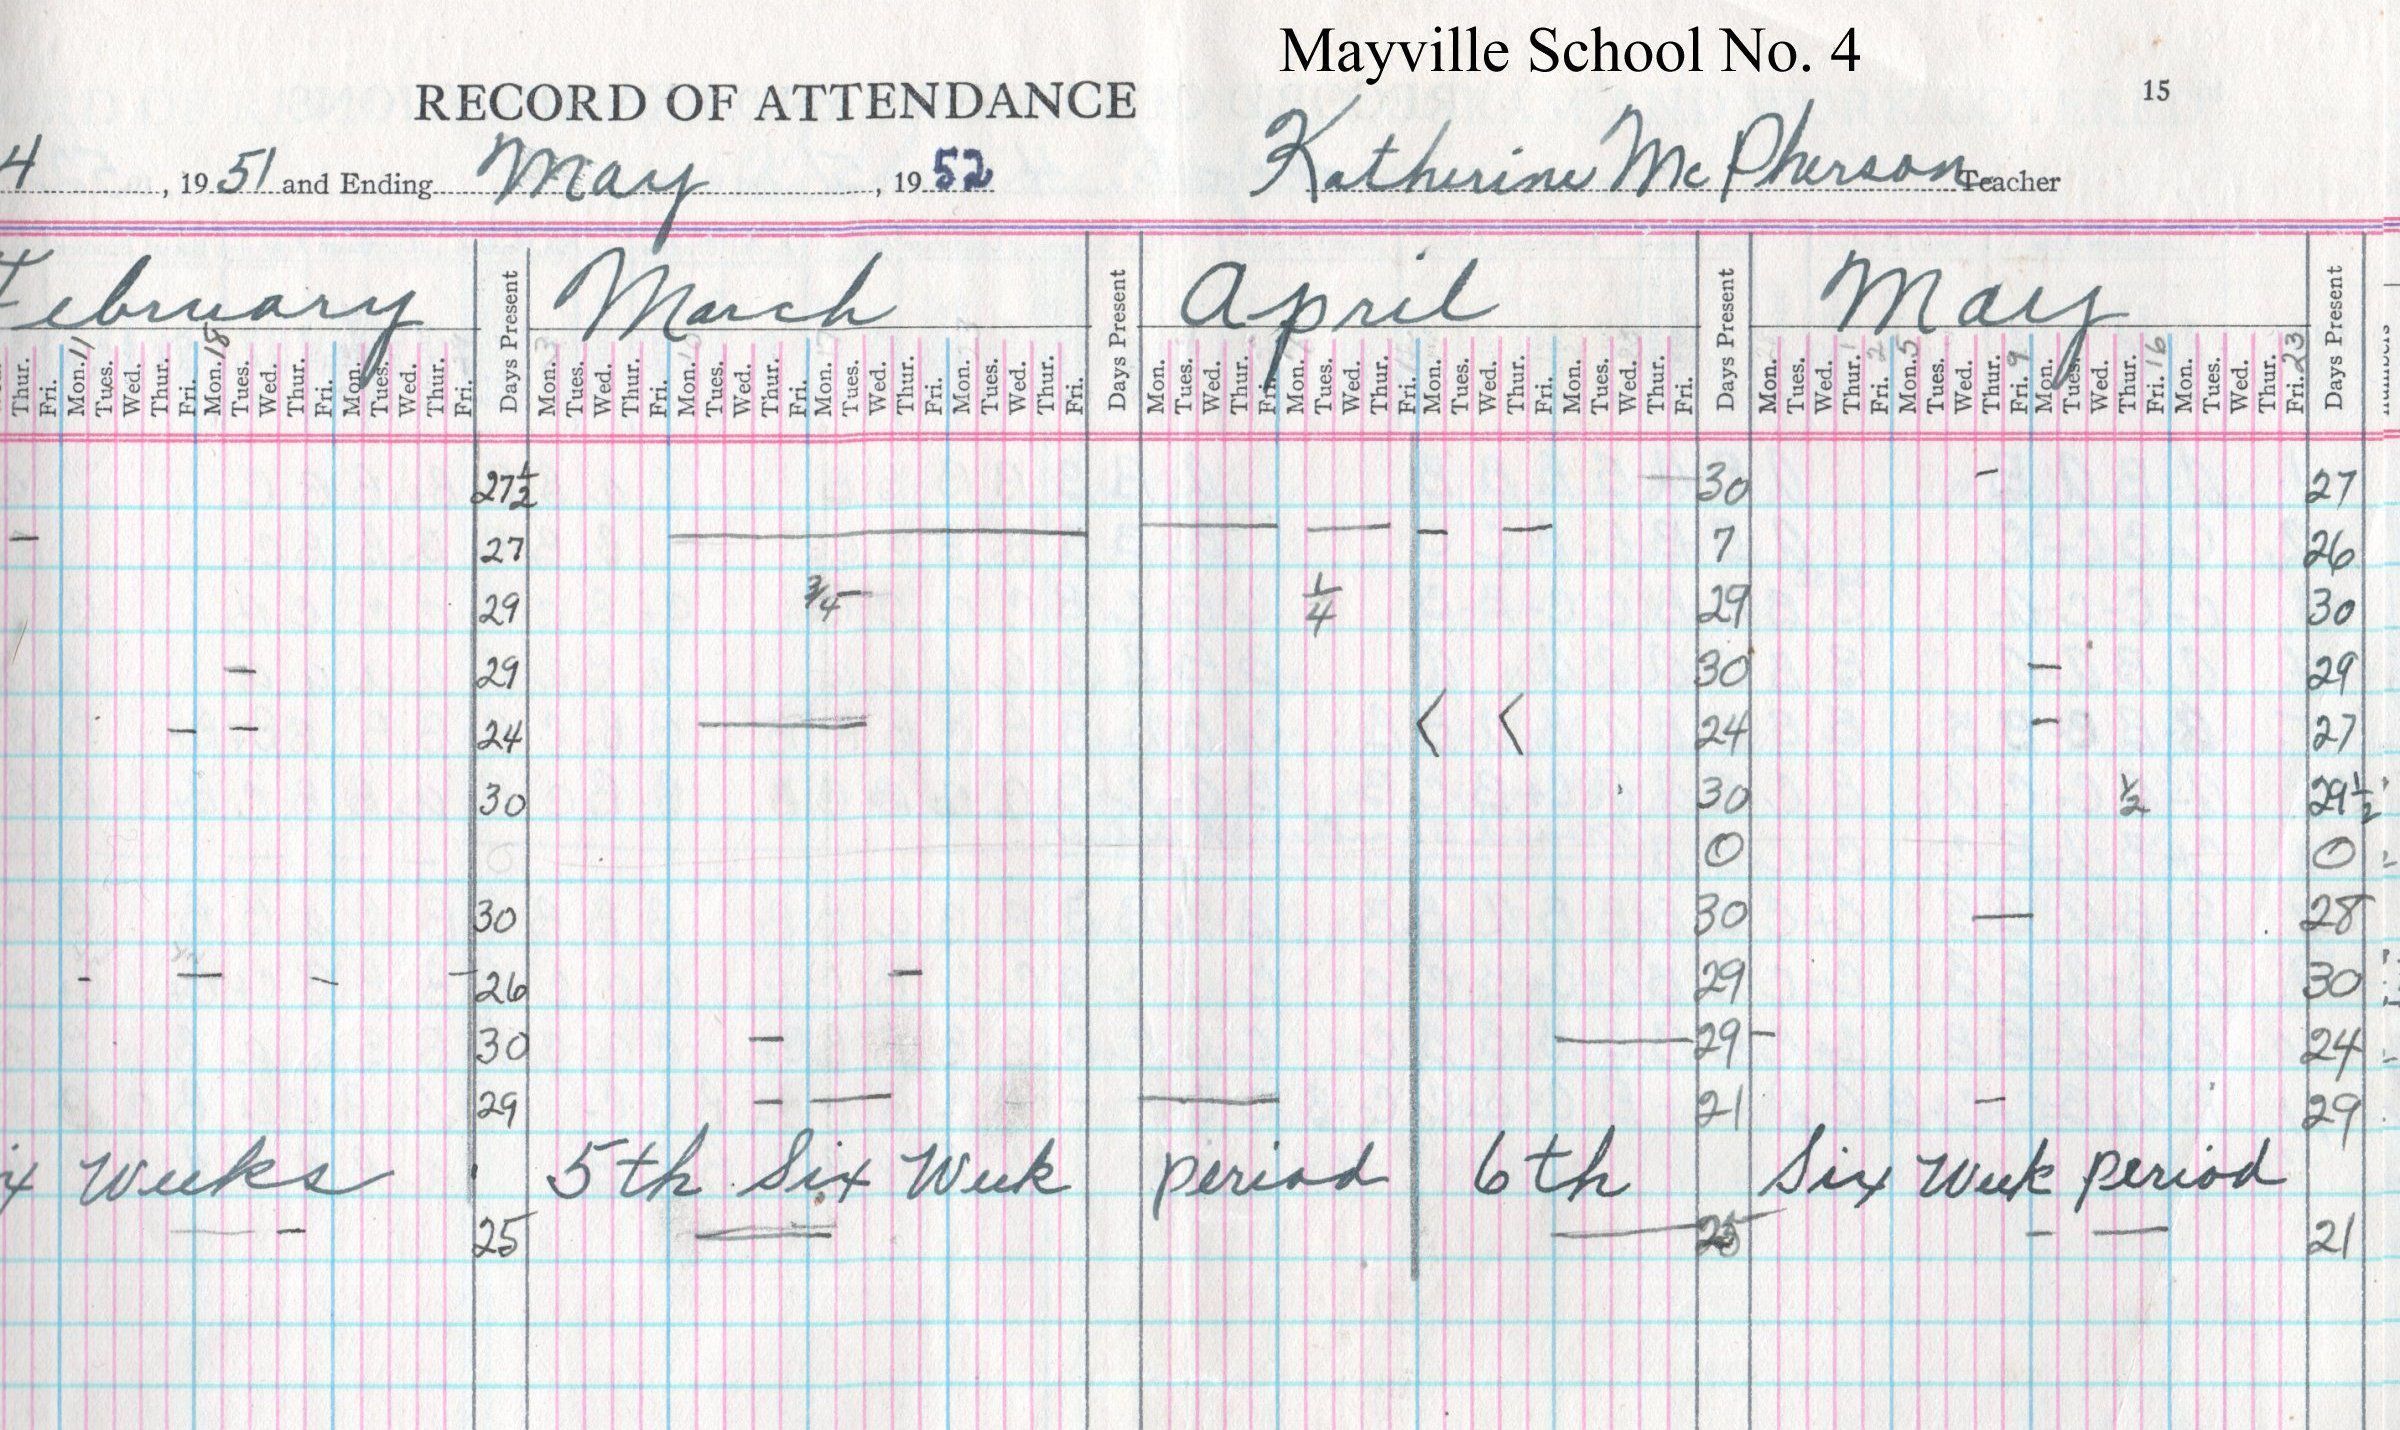 Mayville School No. 4
RECORD OF ATTENDANCE 15
4, 1951 and Ending May, 1952 Katherine McPherson Teacher
February Days Present March Days Present April Days Present May Days Present
Thur. Fri. Mon. 11 Tues. Wed. Thur. Fri. Mon. 18 Tues. Wed. Thur. Fri. Mon. Tues. Wed. Thur. Fri. Mon. Tues. Wed. Thur. Fri. Mon. Tues. Wed. Thur. Fri. Mon. Tues. Wed. Thur. Fri. Mon. Tues. Wed. Thur. Fri. Mon. Tues. Wed. Thur. Fri. Mon. Tues. Wed. Thur. Fri. Mon. Tues. Wed. Thur. Fri. Mon. Tues. Wed. Thur. Fri. Mon. Tues. Wed. Thur. Fri. 2 Mon. 5 Tues. Wed. Thur. Fri. 9 Mon. Tues. Wed. Thur. Fri. 16 Mon. Tues. Wed. Thur. Fri. 23
27 1/2 30 27
27 7 26
29 3/4 1/4 29 30
29 30 29
24 24 27
30 30 1/2 29 1/2
0 0
30 30 28
26 29 30
30 29 24
29 21 29
Weeks 5th Six Week period 6th Six Week period
25 25 21